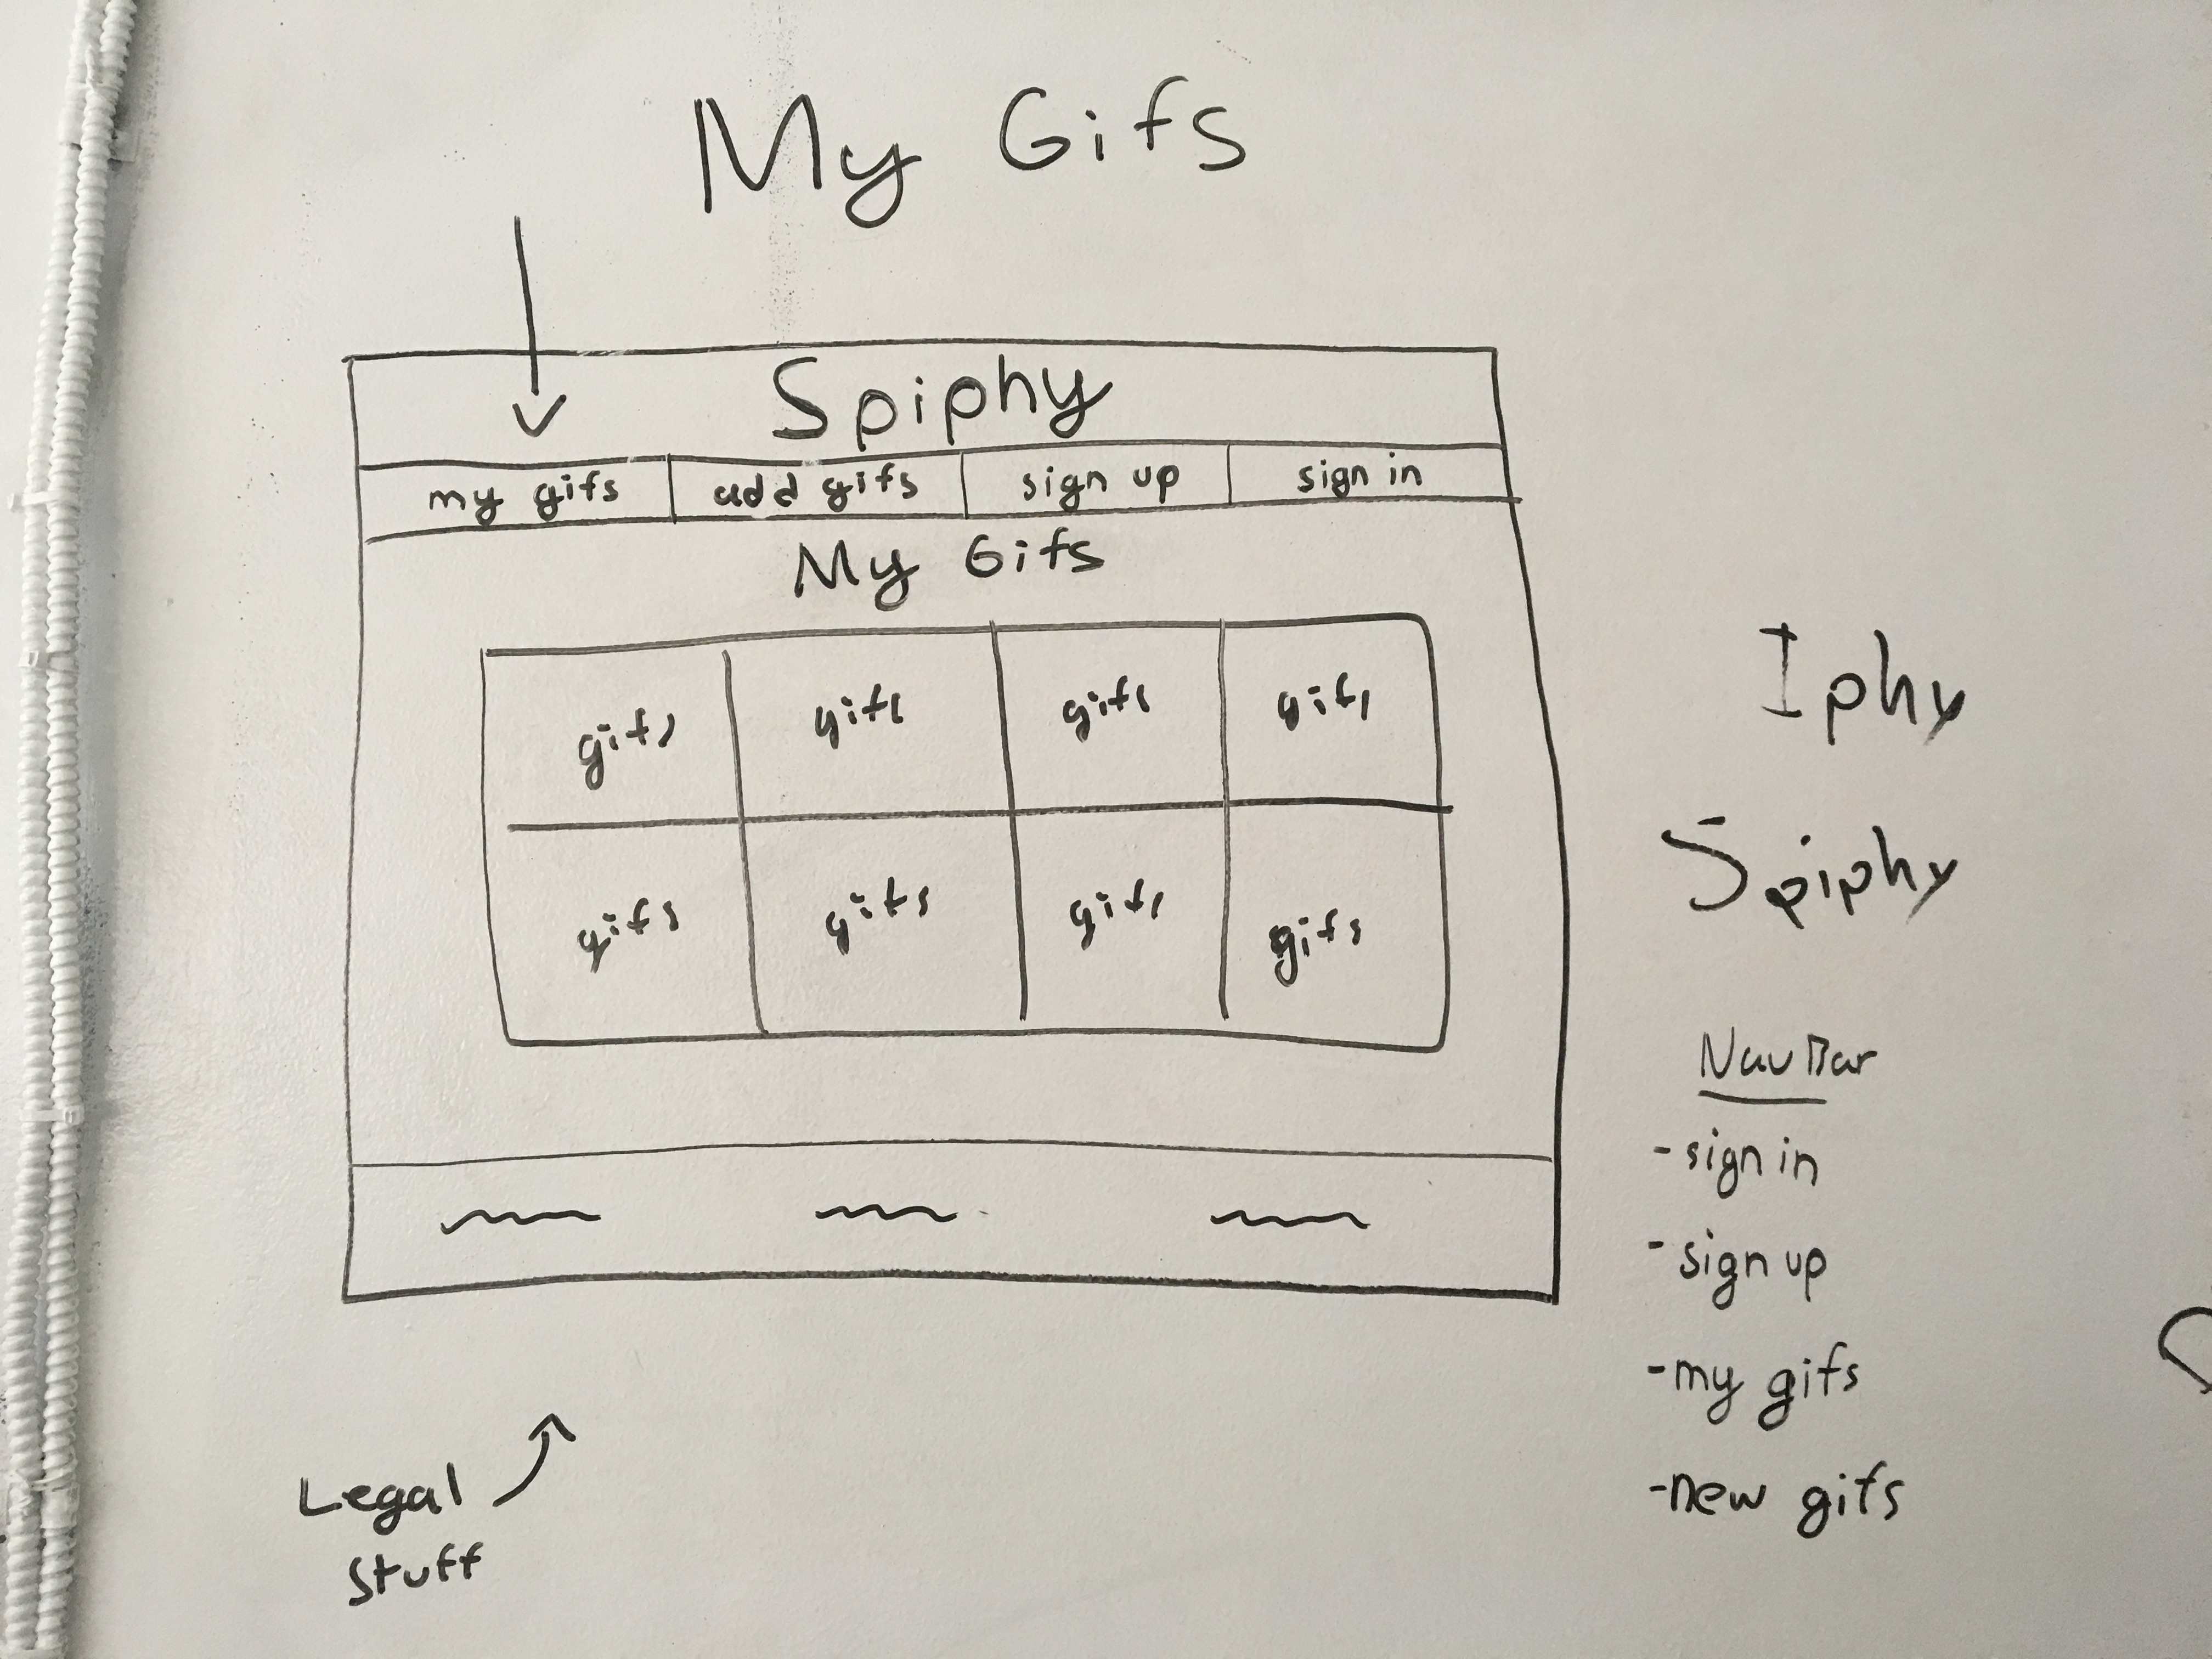 My Gifs
Spiphy
my gifs add gifs sign up sign in
My Gifs
gifs gifs gifs gifs
gifs gifs gifs gifs
Legal
Stuff
Iphy
Spiphy
NavBar
- sign in
- sign up
- my gifs
- new gifs